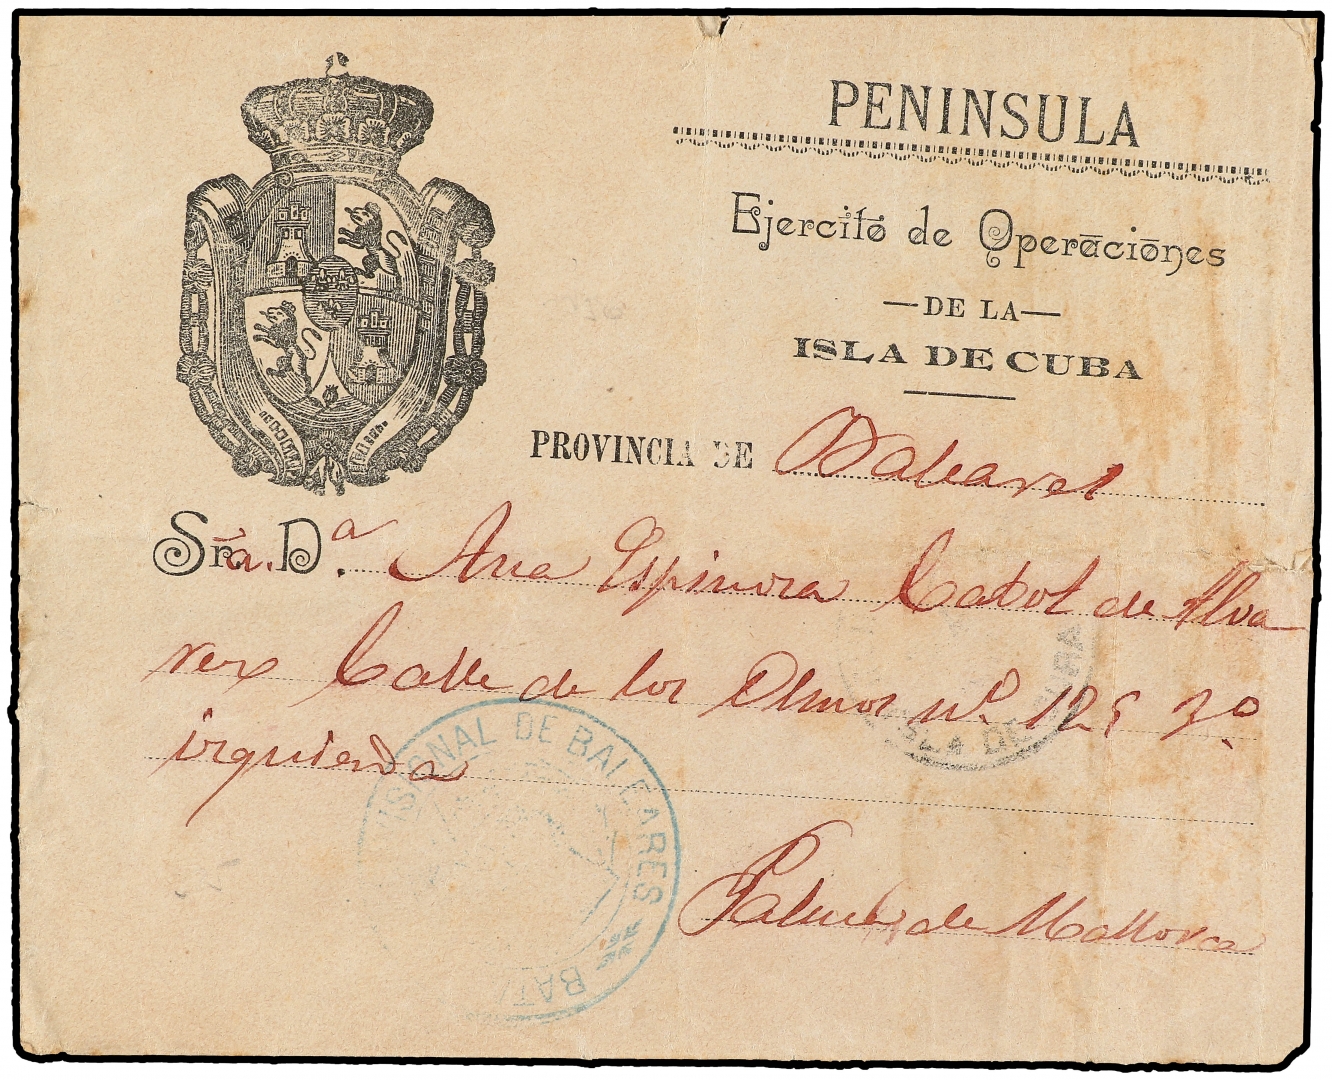 PENINSULA
Ejercito de Operaciones
—DE LA—
ISLA DE CUBA
PROVINCIA DE Baleares
Sra. Dª. Ana Espinosa Cabot de Alva
rez Calle de los Olmos nº. 125 3º.
izquierda
Palma de Mallorca
ISIONAL DE BALEARES
BAT
ISLA DE